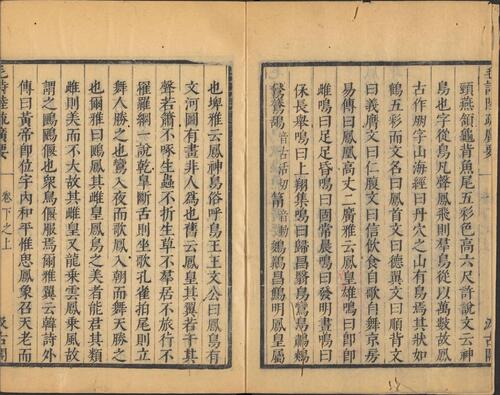 毛詩陸疏廣要
頸燕頷龜背魚尾五彩色高六尺許說文云神
鳥也字從鳥凡聲鳳飛則羣鳥從以萬數故鳳
古作朋字山海經曰丹穴之山有鳥焉其狀如
鶴五彩而文名曰鳳首文曰德翼文曰順背文
曰義膺文曰仁腹文曰信飲食自歌自舞京房
易傳曰鳳皇高丈二廣雅云鳳皇雄鳴曰卽卽
雌鳴曰足足昏鳴曰固常晨鳴曰發明晝鳴曰
保長舉鳴曰上翔集鳴曰歸昌
音古活切
音動
鳳皇屬
汲古閣
也埤雅云鳳神鳥俗呼鳥王王文公曰鳳鳥有
文河圖有畫非人爲也舊云鳳皇其翼若干其
聲若簫不啄生蟲不折生草不羣居不旅行不
罹羅綱一說乾臯斷舌則坐歌孔雀拍尾則立
舞人勝之也鸞入夜而歌鳳入朝而舞天勝之
也爾雅曰鶠鳳其雌皇鳳鳥之美者能君其類
雌則美而不大故其雌皇又龍乘雲鳳乘風故
謂之鶠鶠偃也衆鳥偃服焉爾雅翼云韓詩外
傳曰黃帝卽位宇內和平惟思鳳象召天老而
毛詩陸疏廣要
卷下之上
汲古閣